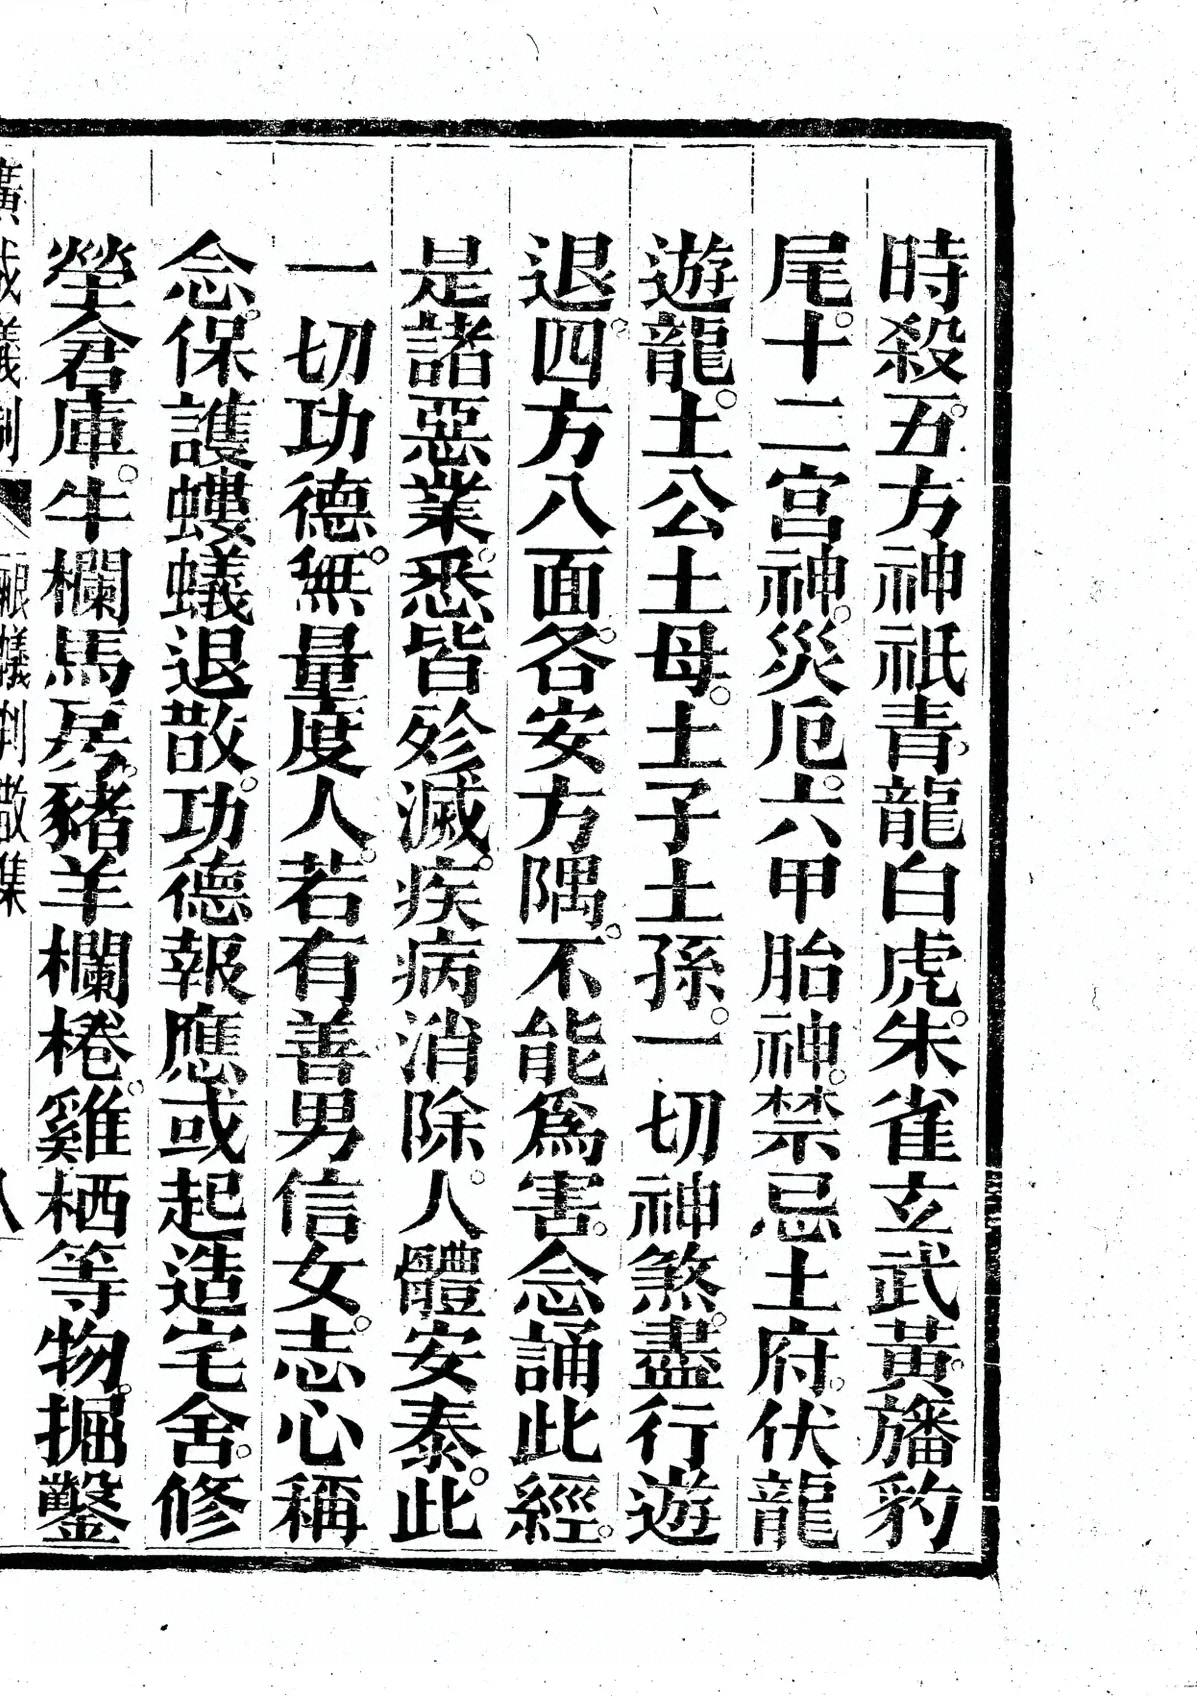 時殺。五方神祇青。龍白虎。朱雀玄武黃。旛豹
尾。十二宮神。災厄。六甲胎神。禁忌土府。伏龍
遊龍。土公土母。土子土孫。一切神煞。盡行遊
退。四方八面。各安方隅。不能爲害。念誦此經。
是諸惡業。悉皆殄滅。疾病消除。人體安泰。此
一切功德。無量度人。若有善男信女。志心稱
念。保護螻蟻退散。功德報應或起造宅舍。修
塋倉庫。牛欄馬房。豬羊欄棬。雞栖等物。掘鑿
廣成儀制
八